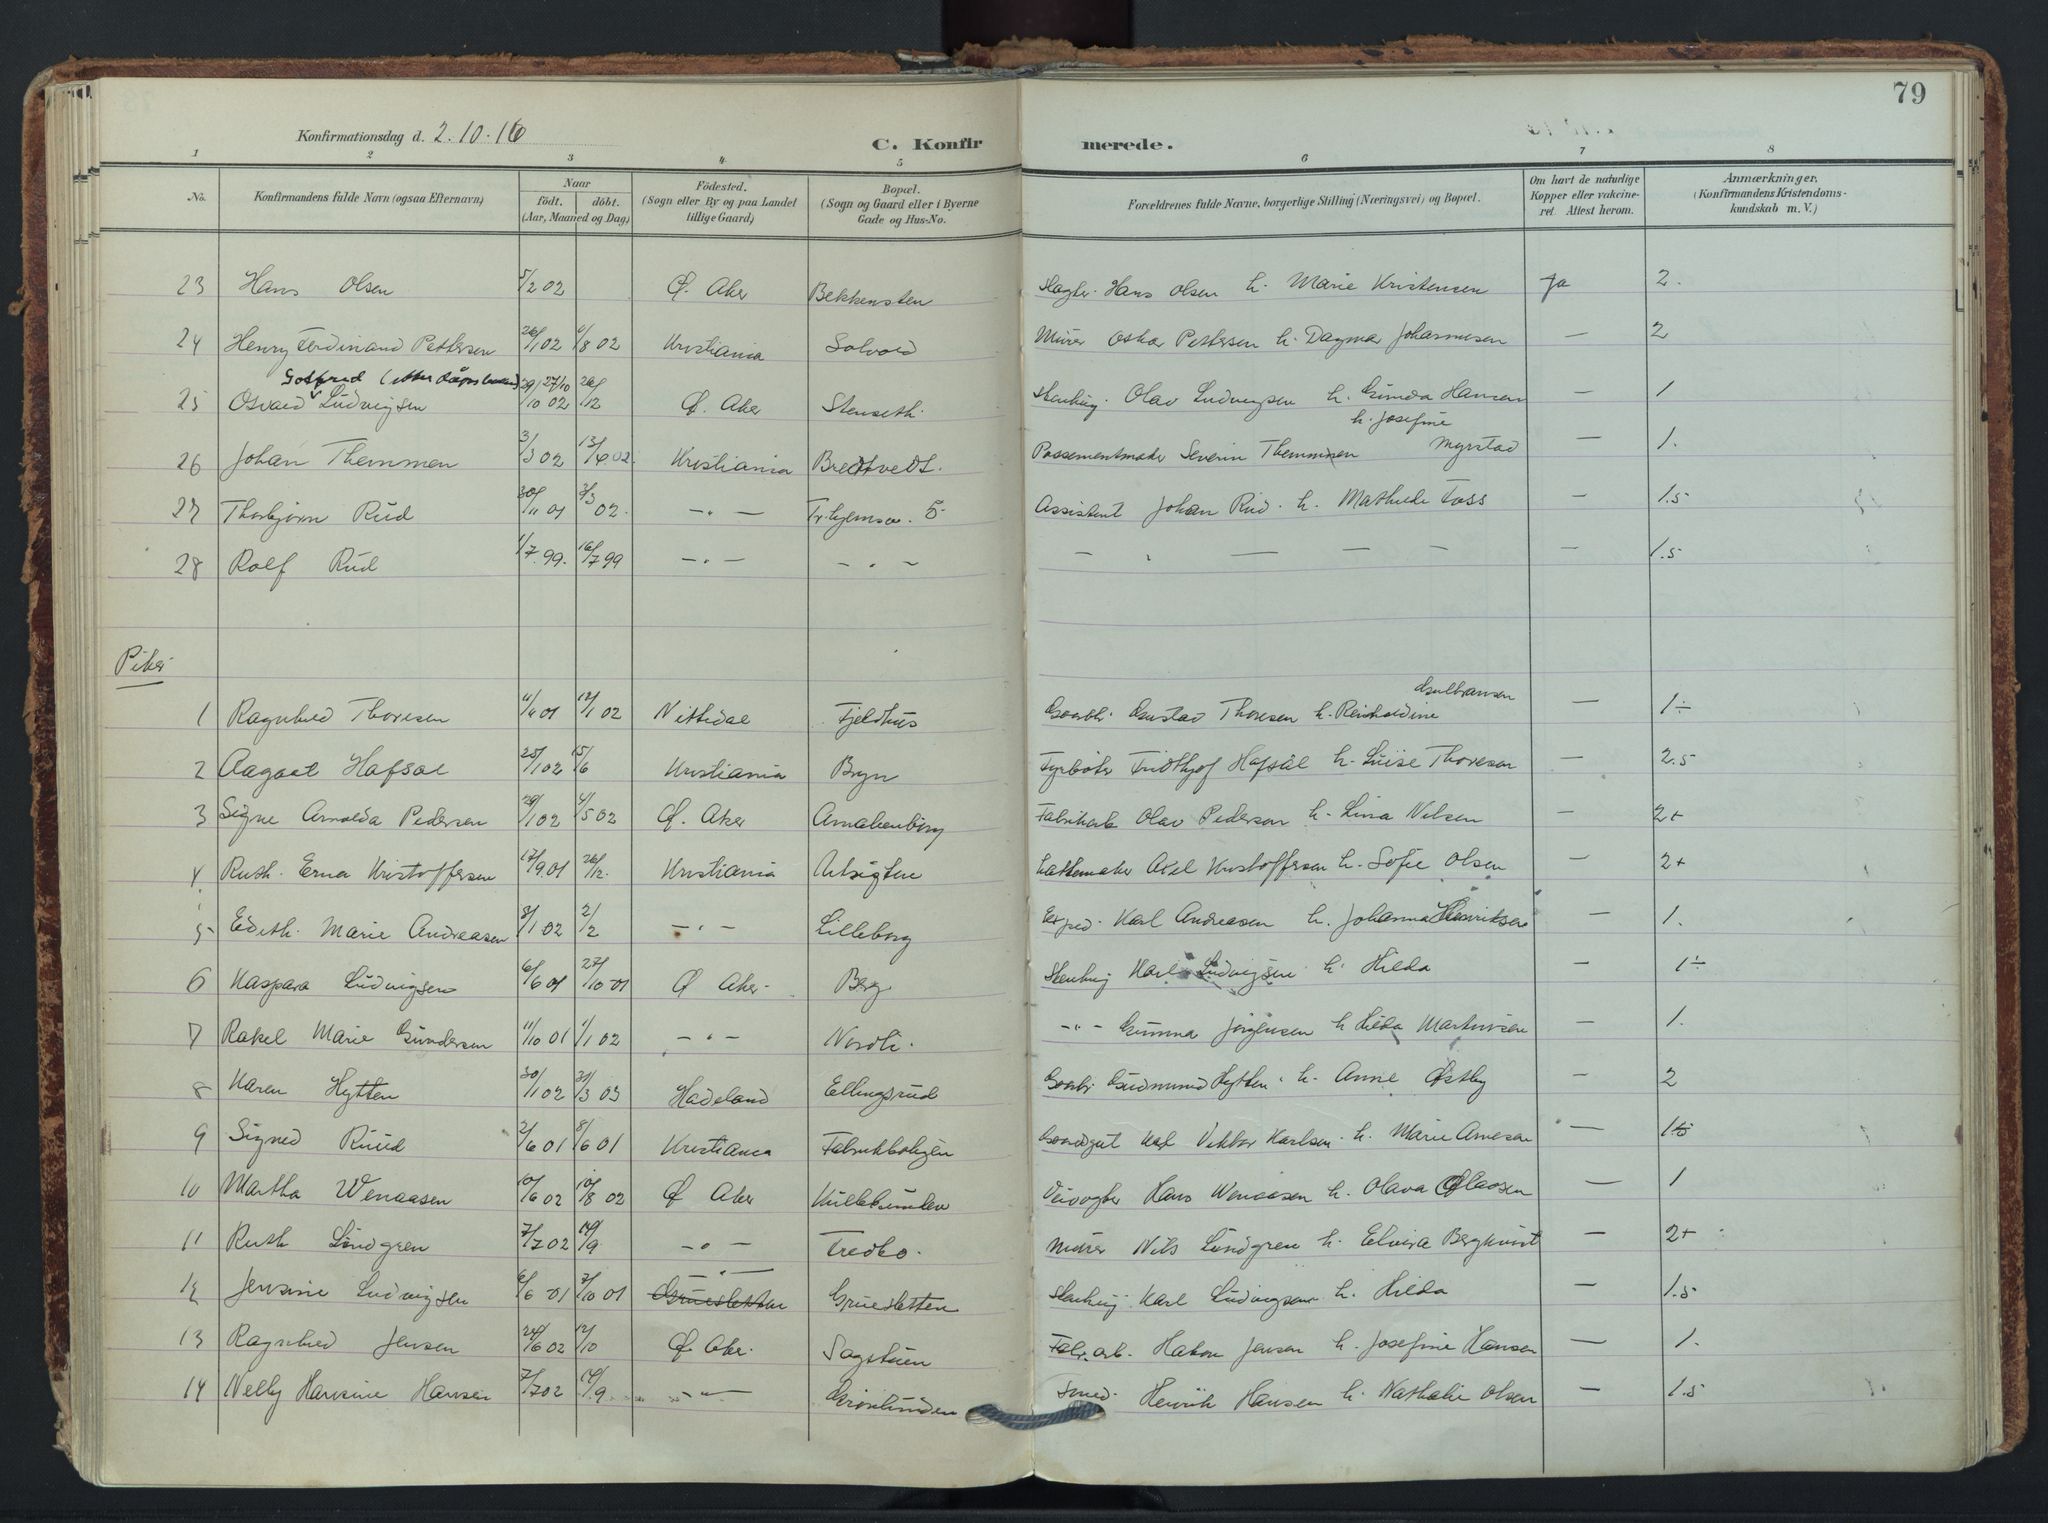 79
Konfirmationsdag d. 2.10.16
C. Konfirmerede.
1 2 3 4 5 6 7 8
No. Konfirmandens fulde Navn (ogsaa Efternavn) Naar født. døbt. (Aar, Maaned og Dag) Fødested. (Sogn eller By og paa Landet tillige Gaard) Bopæl. (Sogn og Gaard eller i Byerne Gade og Hus-No. Forældrenes fulde Navne, borgerlige Stilling (Næringsvei) og Bopæl. Om havt de naturlige Kopper eller vakcineret. Attest herom. Anmærkninger. (Konfirmandens Kristendomskundskab m. V.)
23 Hans Olsen 5/2 02 Ø. Aker Bekkensten Slagter Hans Olsen h. Marie Kristensen Ja 2.
24 Henry Ferdinand Pettersen 26/1 02 /8 02 Kristiania Solvold Murer Oskar Pettersen h. Dagmar Johannesen — 2
Gotfred
25 Osvald Ludvigsen 29/10 02 27/10 26/12 Ø. Aker Stenseth. Stenhug. Olav Ludvigsen h. Gunda Hansen — 1
26 Johan Themmen 3/3 02 13/6 02. Kristiania Bredtvedt. Possementmaker Severin Themmen h. Josefine Myrstad — 1.
27 Thorbjørn Rud 30/11 01 3/3 02. —"— Tr.hjemsv. 5 Assistent Johan Rud h. Mathilde Foss — 1.5
28 Rolf Rud 1/7 99. 16/7 99 —"— —"— — " — — — — 1.5
Piker
1 Ragnhild Thoresen 11/11 01 12/1 02 Nittedal Fjeldhus Gaardbr. Gustav Thoresen h. Reinholdine Gulbransen — 1÷
2 Aagaat Hafsal 25/1 02 15/6 Kristiania Bryn Fyrbøter Fridthjof Hafsal h. Luise Thoresen — 2.5
3 Signe Arnolda Pedersen 29/1 02 4/5 02 Ø. Aker Amalienborg Fabrikarb Olav Pedersen h. Lina Nilsen — 2+
4 Ruth Erna Kristoffersen 17/9 01 26/12. Kristiania Utsigten Axel Kristoffersen h. Sofie Olsen — 2+
5 Edith. Marie Andreasen 8/1 02 2/2 —"— Lilleborg Exped. Karl Andreasen h. Johanna Henriksen — 1.
6 Kaspara Ludvigsen 6/6 01 27/10 01 Ø Aker Berg Stenhug Karl Ludvigsen h. Hilda — 1÷
7 Rakel Marie Gundersen 11/10 01 1/1 02 —"— Nordli. —"— Gunnar Jørgensen h Hilda Martinsen — 1.
8 Karen Hytten 30/1 02 31/3 03 Hadeland Ellingsrud Gaardbr Gudmund Hytten h. Anne Østby — 2
9 Signed Ruud 2/6 01 8/6 01 Kristiania Fabrikboligen Gaardgut Karl Viktor Karlsen h. Marie Arnesen — 1.5
10 Martha Wenaasen 10/6 02 10/8 02 Ø Aker Veivogter Hans Wenaasen h. Olava Olaosen — 1
11 Ruth Lindgren 7/7 02 14/9 —"— Fredbo. Murer Nils Lindgren h. Elvira Bergkvist — 2+
12 Jensine Ludvigsen 6/6 01 7/10 01 Gruesletten —"— Gruesletten Stenhug. Karl Ludvigsen h. Hilda — 1.5
13 Ragnhild Jensen 24/6 02 12/10 Ø Aker. Sagstuen Fabr.arb. Hakon Jensen h. Josefine Hansen — 1.
14 Nelly Hansine Hansen 7/7 02 14/9 —"— Grønlunden Smed. Henrik Hansen h. Nathalie Olsen — 1.5